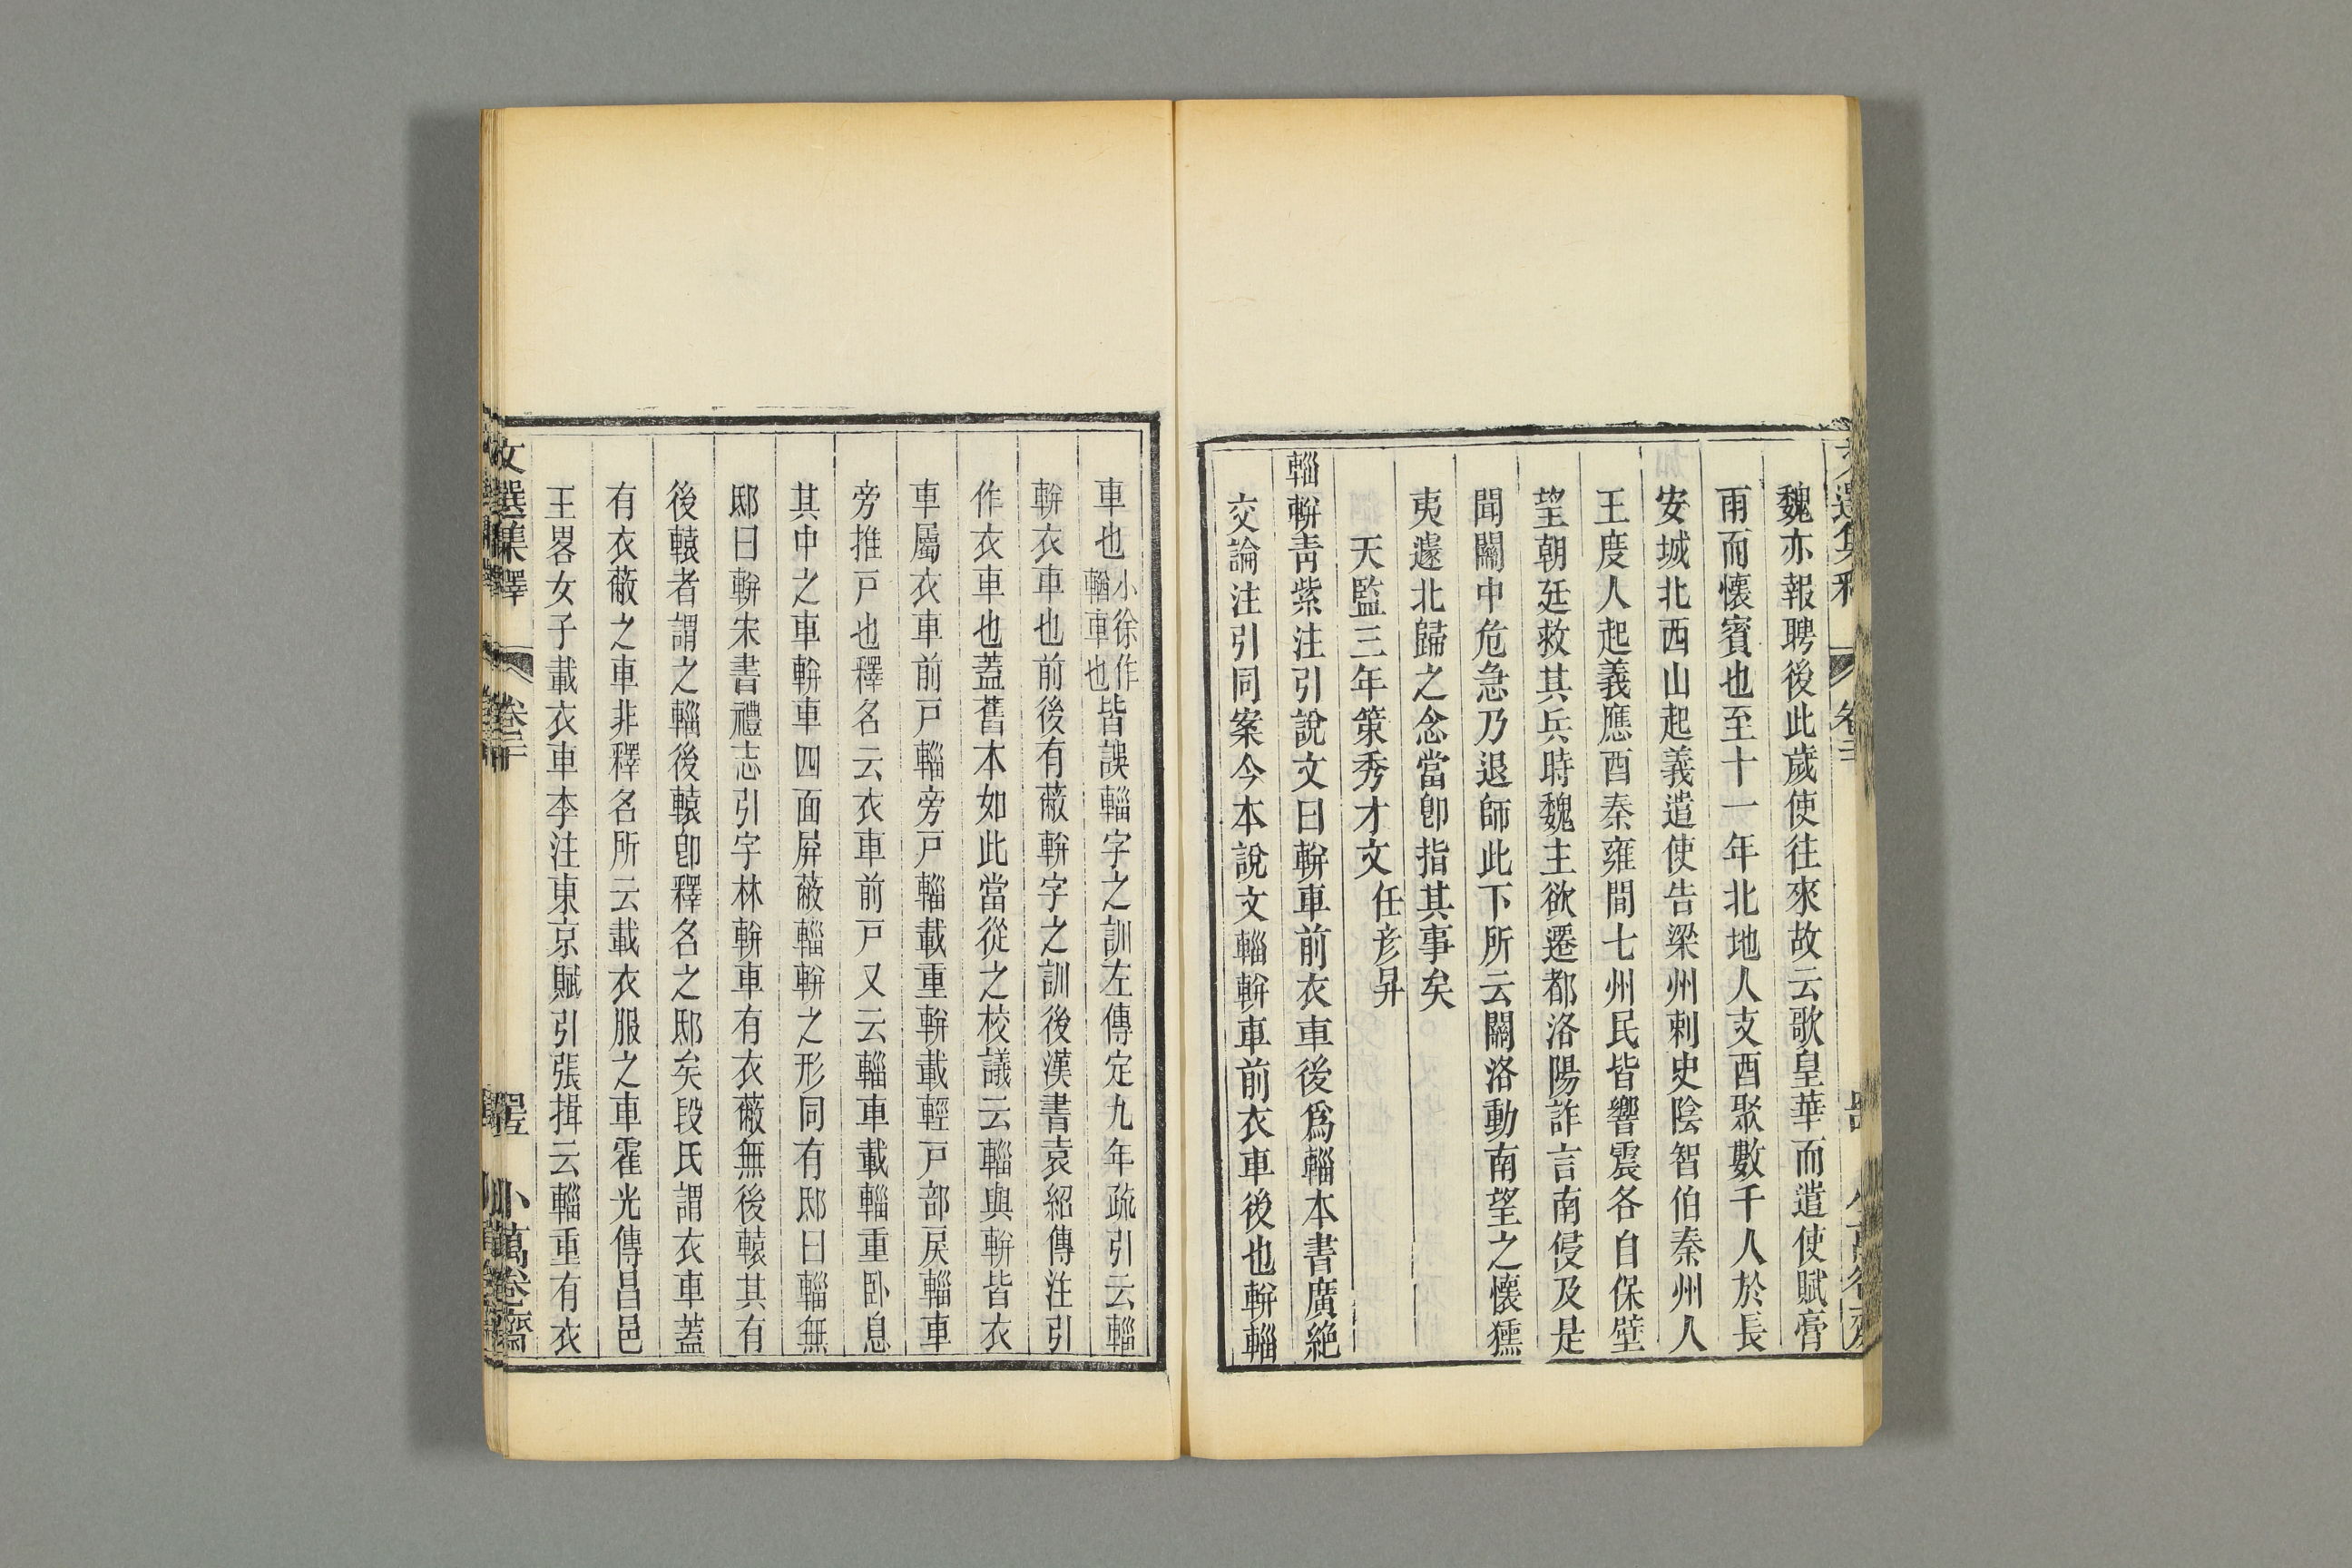 魏亦報聘後此歲使往來故云歌皇華而遣使賦膏
雨而懷賓也至十一年北地人支酉聚數千人於長
安城北西山起義遣使告梁州刺史陰智伯秦州人
王度人起義應酉秦雍間七州民皆響震各自保壁
望朝廷救其兵時魏主欲遷都洛陽詐言南侵及是
聞關中危急乃退師此下所云關洛動南望之懷獯
夷遽北歸之念當卽指其事矣
天監三年策秀才文 任彥昇
輜軿青紫注引說文曰軿車前衣車後爲輜本書廣絕
交論注引同案今本說文輜軿車前衣車後也軿輜
車也小徐作輜車也皆誤輜字之訓左傳定九年疏引云輜
軿衣車也前後有蔽軿字之訓後漢書袁紹傳注引
作衣車也蓋舊本如此當從之校議云輜與軿皆衣
車屬衣車前戸輜旁戸輜載重軿載輕戸部戾輜車
旁推戸也釋名云衣車前戸又云輜車載輜重臥息
其中之車軿車四面屏蔽輜軿之形同有邸曰輜無
邸曰軿宋書禮志引字林軿車有衣蔽無後轅其有
後轅者謂之輜後轅卽釋名之邸矣段氏謂衣車蓋
有衣蔽之車非釋名所云載衣服之車霍光傳昌邑
王畧女子載衣車李注東京賦引張揖云輜重有衣
文選集釋 卷二十 小萬卷齋